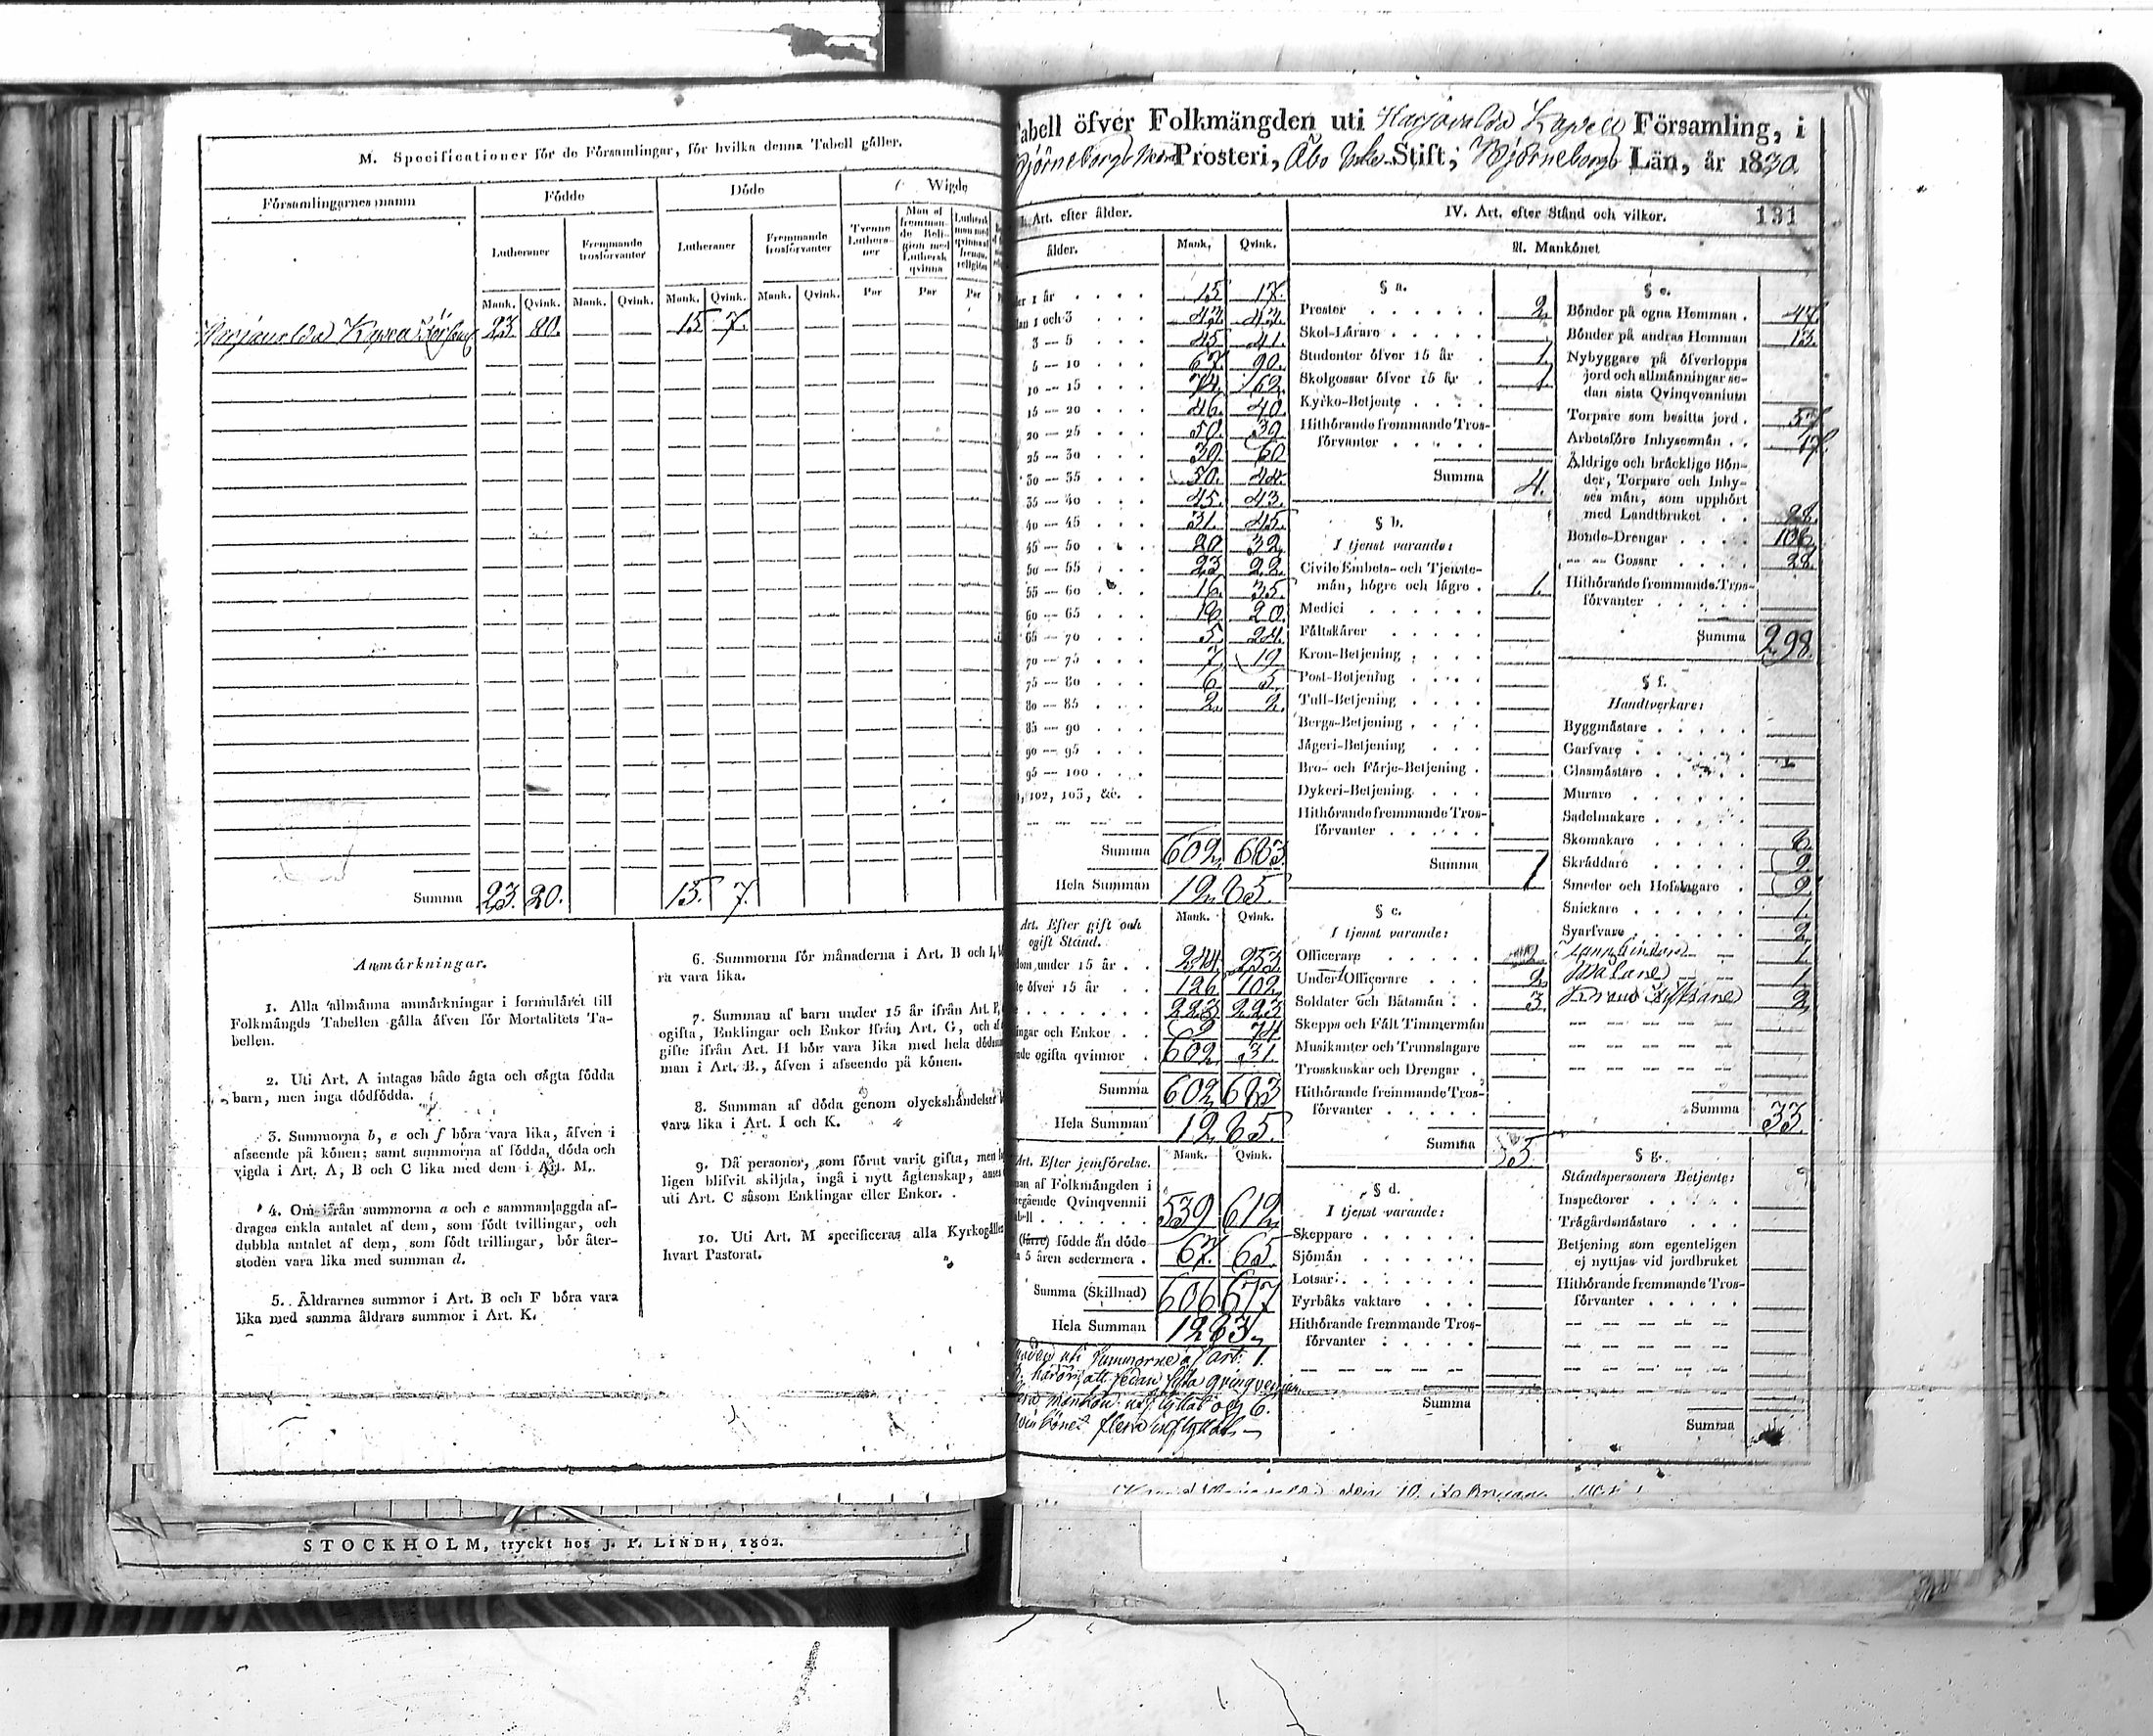 M. Specificationer för de Församlingar, för hvilka denna Tabell gäller.
Församlingarnes namn
Födde
Döde
Wigde
Lutheraner
Fremmande trosförvanter
Lutheraner
Fremmande trosförvanter
Tvenne Luthera-ner
Man af fremman-de Reli-gion med Luthersk qvinna
Mank. Qvink. Mank. Qvink. Mank. Qvink. Mank. Qvink. Par Par Par
Harjavalda Kapell 23. 20. 15. 7.
Summa 23. 20. 15. 7.
Anmärkningar.
1. Alla allmänna anmärkningar i formuläret till
Folkmängds Tabellen gälla äfven för Mortalitets Ta-
bellen.
2. Uti Art. A intagas både ägta och oägta födda
barn, men inga dödfödda.
3. Summorna b, e och f böra vara lika, äfven i
afseende på könen; samt summorna af födda, döda och
vigda i Art. A, B och C lika med dem i Art. M.
4. Om ifrån summorna a och c sammanlaggda af-
drages enkla antalet af dem, som födt tvillingar, och
dubbla antalet af dem, som födt trillingar, bör åter-
stoden vara lika med summan d.
5. Åldrarnes summor i Art. B och F böra vara
lika med samma åldrars summor i Art. K.
6. Summorna för månaderna i Art. B och L
ra vara lika.
7. Summan af barn under 15 år ifrån Art. F,
ogifta, Enklingar och Enkor ifrån Art. G, och af
gifte ifrån Art. H bör vara lika med hela
man i Art. B., äfven i afseende på könen.
8. Summan af döda genom olyckshändelser
vara lika i Art. I och K.
9. Då personer, som förut varit gifta, men
ligen blifvit skiljda, ingå i nytt ägtenskap,
uti Art. C såsom Enklingar eller Enkor.
10. Uti Art. M specificeras alla
hvart Pastorat.
STOCKHOLM, tryckt hos J. P. LINDH, 1802.
Tabell öfver Folkmängden uti Harjavalda Kapell Församling, i
Björneborgs Prosteri, Åbo Stift, Björneborgs Län, år 1830.
Art. efter ålder.
ålder. Mank. Qvink.
1 år 15 17.
1 och 3 43. 43.
3 — 5 45 41.
5 — 10 67. 90.
10 — 15 74. 62.
15 — 20 46. 40.
20 — 25 50. 39.
25 — 30 39. 60
30 — 35 50. 44.
35 — 40 45. 43.
40 — 45 31. 45.
45 — 50 20 32.
50 — 55 23 28.
55 — 60 16. 35.
60 — 65 18. 20.
65 — 70 5. 24.
70 — 75 7. 19
75 — 80 6. 5.
80 — 85 2. 2.
85 — 90
90 — 95
95 — 100
102, 103, &c.
Summa 602. 663
Hela Summan 1265.
Art. Efter gift och Mank. Qvink.
ogift Stånd.
under 15 år 244. 253.
öfver 15 år 126. 102.
223. 223
och Enkor 9 74.
ogifta qvinnor 31.
Summa 602. 663
Hela Summan 1265.
Art. Efter jemförelse. Mank. Qvink.
af Folkmängden i
Qvinqvennii
539 612.
födde än döde
5 åren sedermera 67. 65.
Summa (Skillnad) 606 677
Hela Summan 1283.
IV. Art. efter Stånd och vilkor. 131
A. Mankönet
§ a.
Prester 2.
Skol-Lärare
Studenter öfver 15 år 1.
Skolgossar öfver 15 år 1.
Kyrko-Betjente
Hithörande fremmande Tros-
förvanter
Summa 4.
§ b.
I tjenst varande:
Civile Embets- och Tjenste-
män, högre och lägre 1.
Medici
Fältskärer
Kron-Betjening
Post-Betjening
Tull-Betjening
Bergs-Betjening
Jägeri-Betjening
Bro- och Färje-Betjening
Dykeri-Betjening
Hithörande fremmande Tros-
förvanter
Summa 1
§ c.
I tjenst varande:
Officerare
Under-Officerare 2.
Soldater och Båtsmän 3.
Skepps och Fält Timmermän
Musikanter och Trumslagare
Trosskuskar och Drengar
Hithörande fremmande Tros-
förvanter
Summa 5.
§ d.
I tjenst varande:
Skeppare
Sjömän
Lotsar
Fyrbåks vaktare
Hithörande fremmande Tros-
förvanter
Summa
§ e.
Bönder på egna Hemman 47.
Bönder på andras Hemman 13.
Nybyggare på öfverlopps
jord och allmänningar se-
dan sista Qvinqvennium
Torpare som besitta jord 57.
Arbetsföre Inhysesmän 17.
Äldrige och bräcklige Bön-
der, Torpare och Inhy-
ses män, som upphört
med Landtbruket
Bonde-Drengar 106.
— — Gossar 28.
Hithörande fremmande Tros-
förvanter
Summa 298.
§ f.
Handtverkare:
Byggmästare
Garfvare
Glasmästare
Murare
Sadelmakare
Skomakare
Skräddare
Smeder och Hofslagare
Snickare 1.
Svarfvare 2.
Summa 33.
§ g.
Ståndspersoners Betjente:
Inspectorer
Trägårdsmästare
Betjening som egenteligen
ej nyttjas vid jordbruket
Hithörande fremmande Tros-
förvanter
Summa